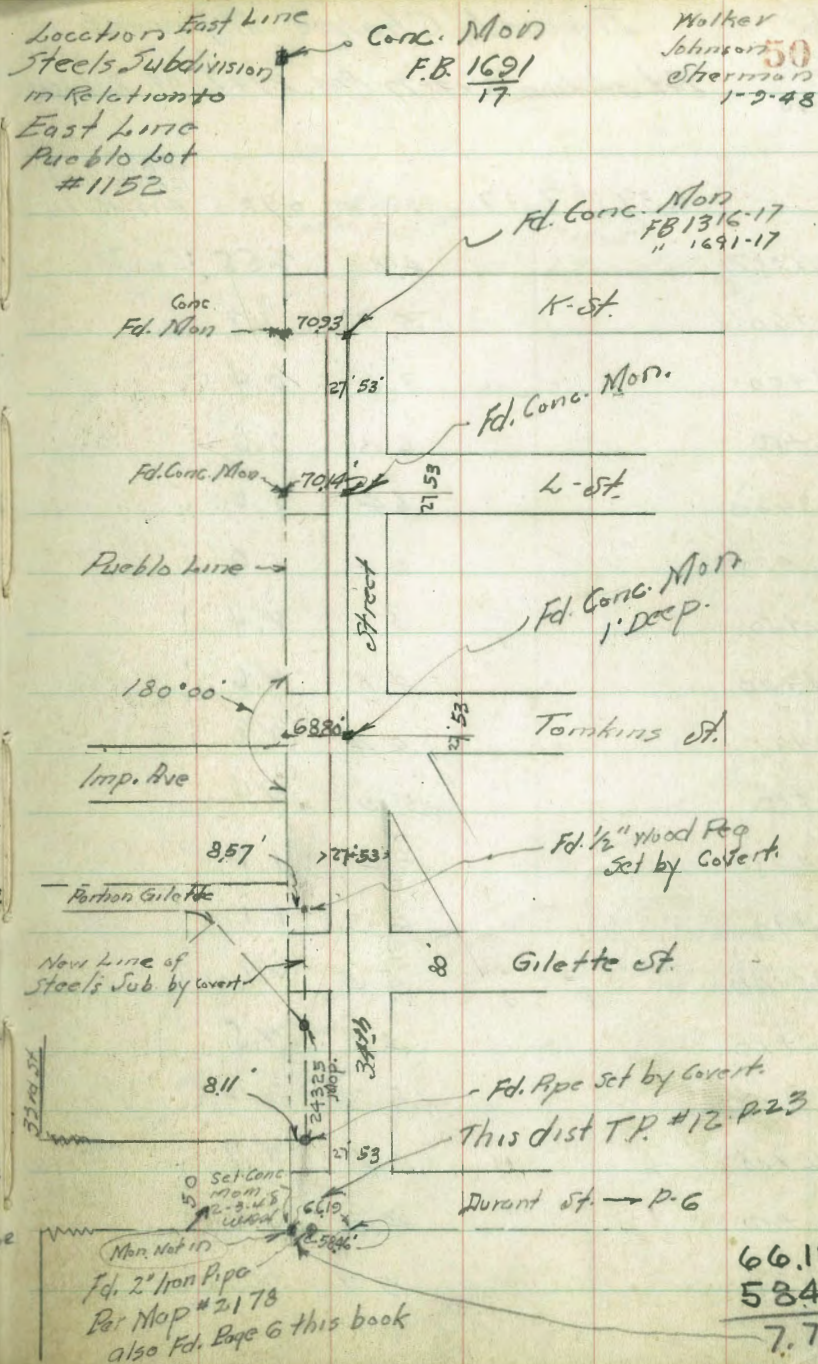 Location East Line
Steels Subdivision
in Relation to
East Line
Pueblo Lot
#1152
Conc. Mon
F.B. 1691
17
Walker
Johnson
Sherman
50
1-9-48
Fd. Conc. Mon
FB 1316-17
" 1691-17
Conc
Fd. Mon
70.93
K-St.
27' 53'
Fd. Conc. Mon.
Fd. Conc. Mon
70.14'
27 53
L-St.
Pueblo Line
Street
Fd. Conc. Mon
1' Deep.
180°00'
68.80'
27' 53
Tomkins St.
Imp. Ave
8.57'
27' 53
Fd. 1/2" Wood Peg
Set by Covert.
Portion Gilette
New Line of
Steels Sub. by Covert
80'
Gilette St.
34th
243.25
Map.
33rd St
8.11'
Fd. Pipe Set by Covert.
This dist T.P. #12 P-23
53
50
Set Conc
Mon
2-3-48
66.19
Durant St. → P-6
58.46'
Mon. Not in
Fd. 2" Iron Pipe
Per Map #2178
also Fd. Page 6 this book
66.1
58.4
7.7